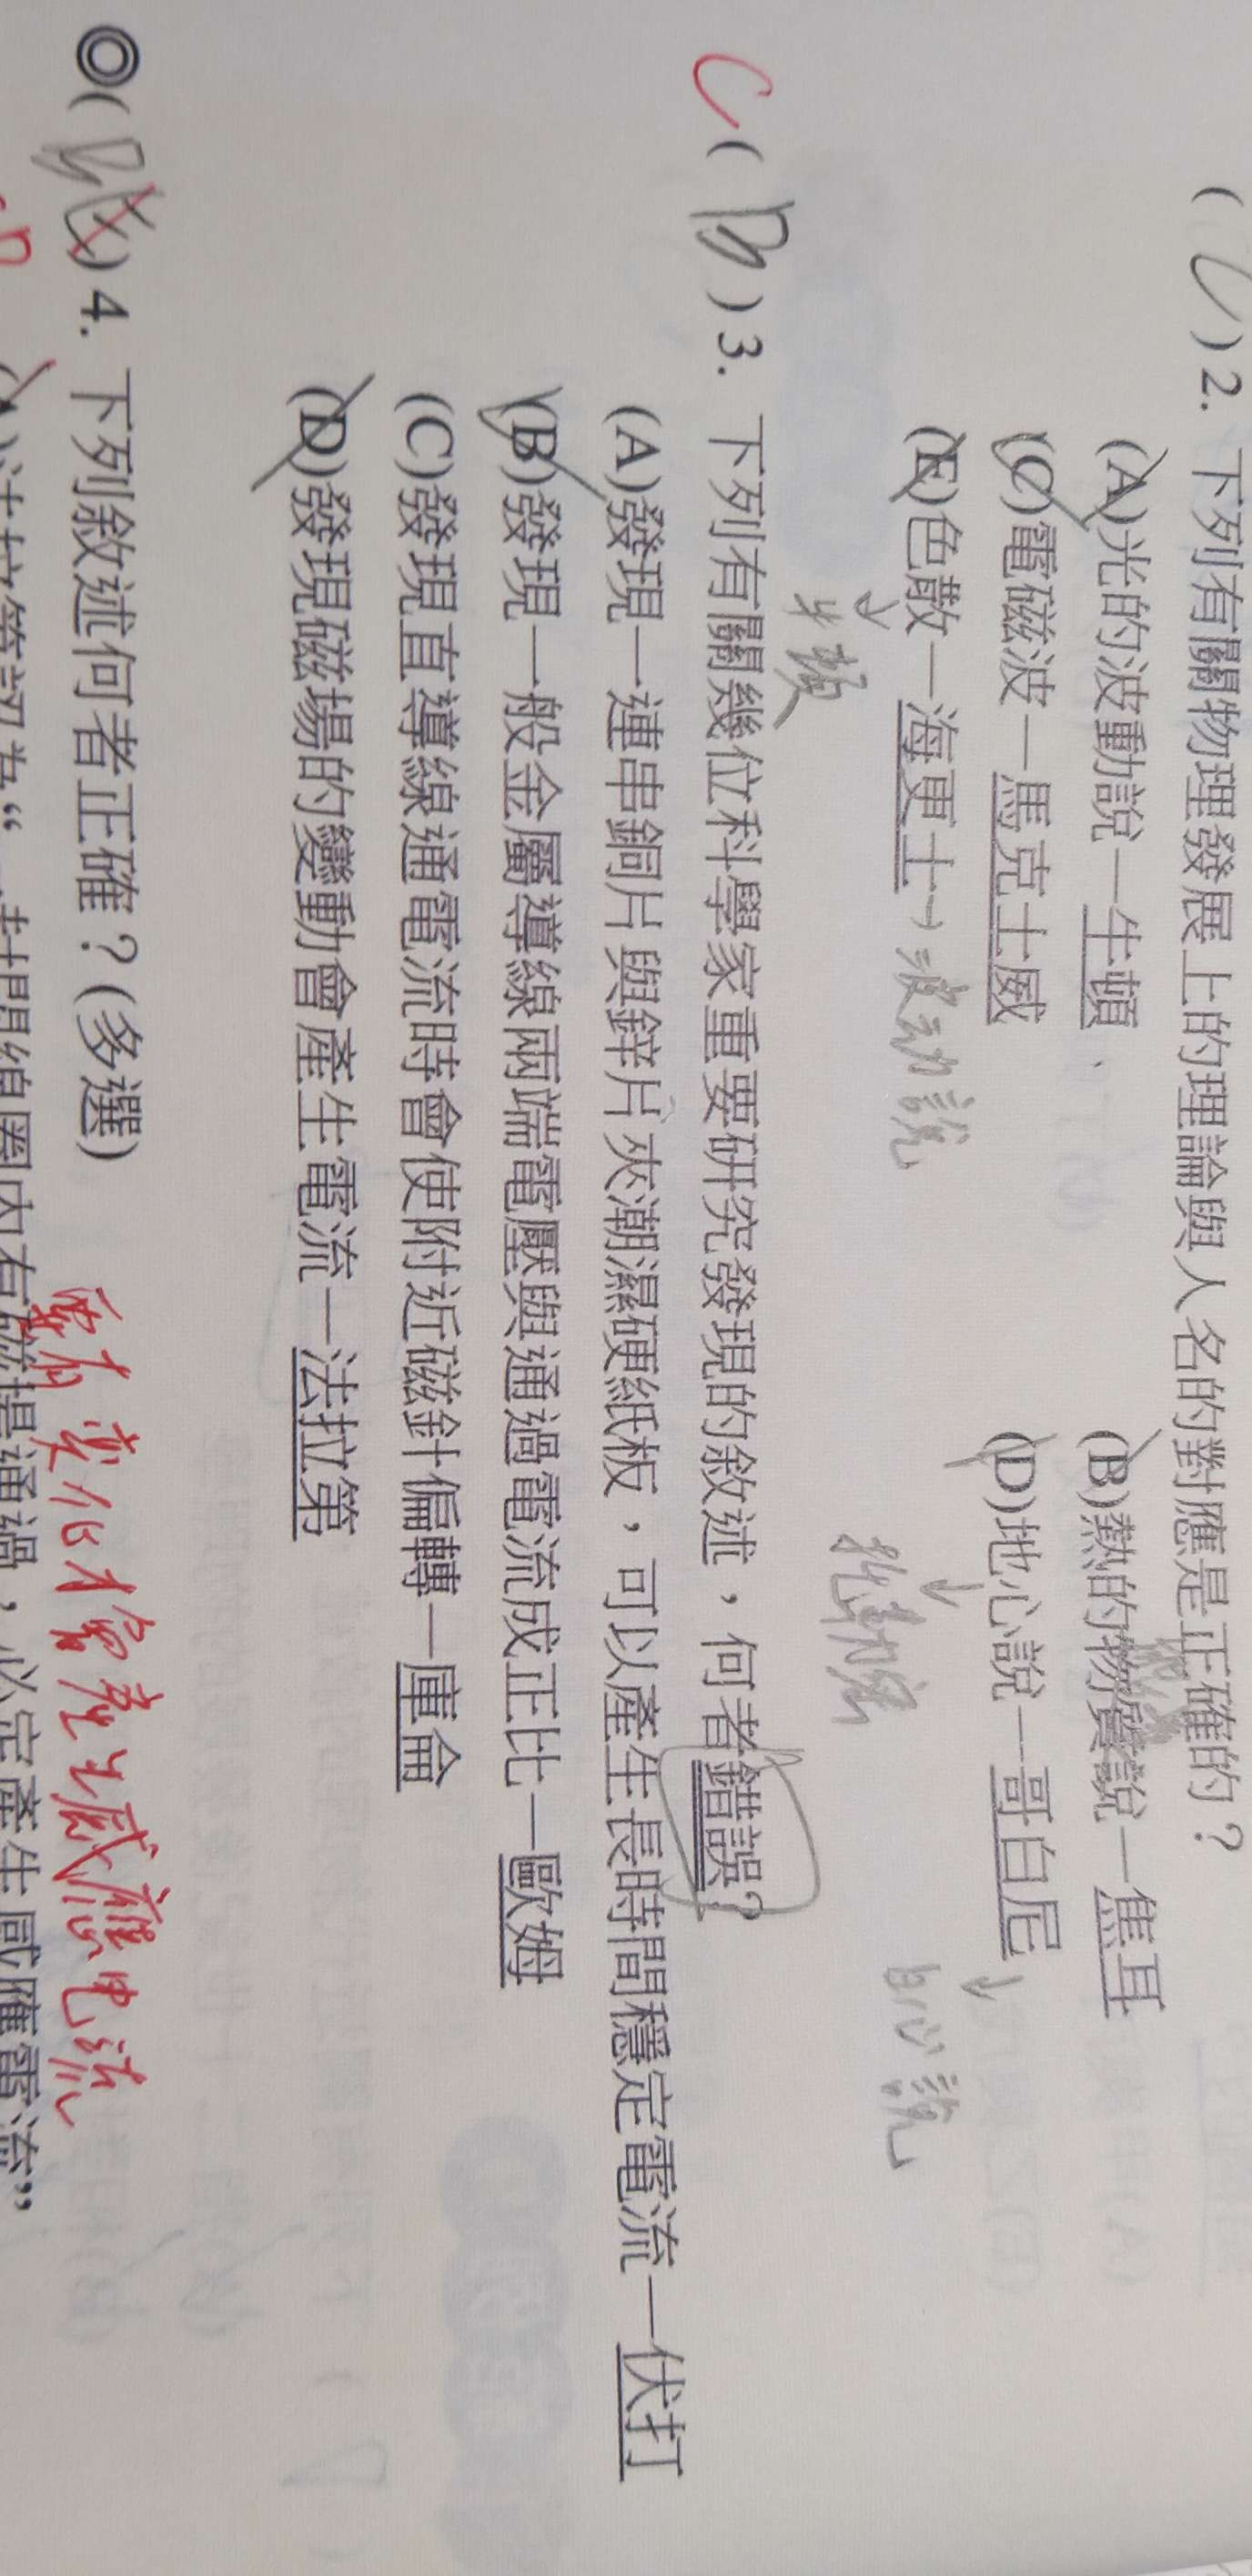 (C) 2. 下列有關物理發展上的理論與人名的對應是正確的？
(A)光的波動說－牛頓、 (B)熱的物質說－焦耳
(C)電磁波－馬克士威 (D)地心說－哥白尼
→日心說
↓
托勒密
(E)色散－海更士→波动說
↓
牛頓
C (B) 3. 下列有關幾位科學家重要研究發現的敘述，何者錯誤？
(A)發現一連串銅片與鋅片夾潮濕硬紙板，可以產生長時間穩定電流－伏打
(B)發現一般金屬導線兩端電壓與通過電流成正比－歐姆
(C)發現直導線通電流時會使附近磁針偏轉－庫侖
(D)發現磁場的變動會產生電流－法拉第
◎( ) 4. 下列敘述何者正確？(多選)
要有变化才會產生感應电流
(A)法拉第認為“一封閉線圈內有磁場通過，必定產生感應電流”